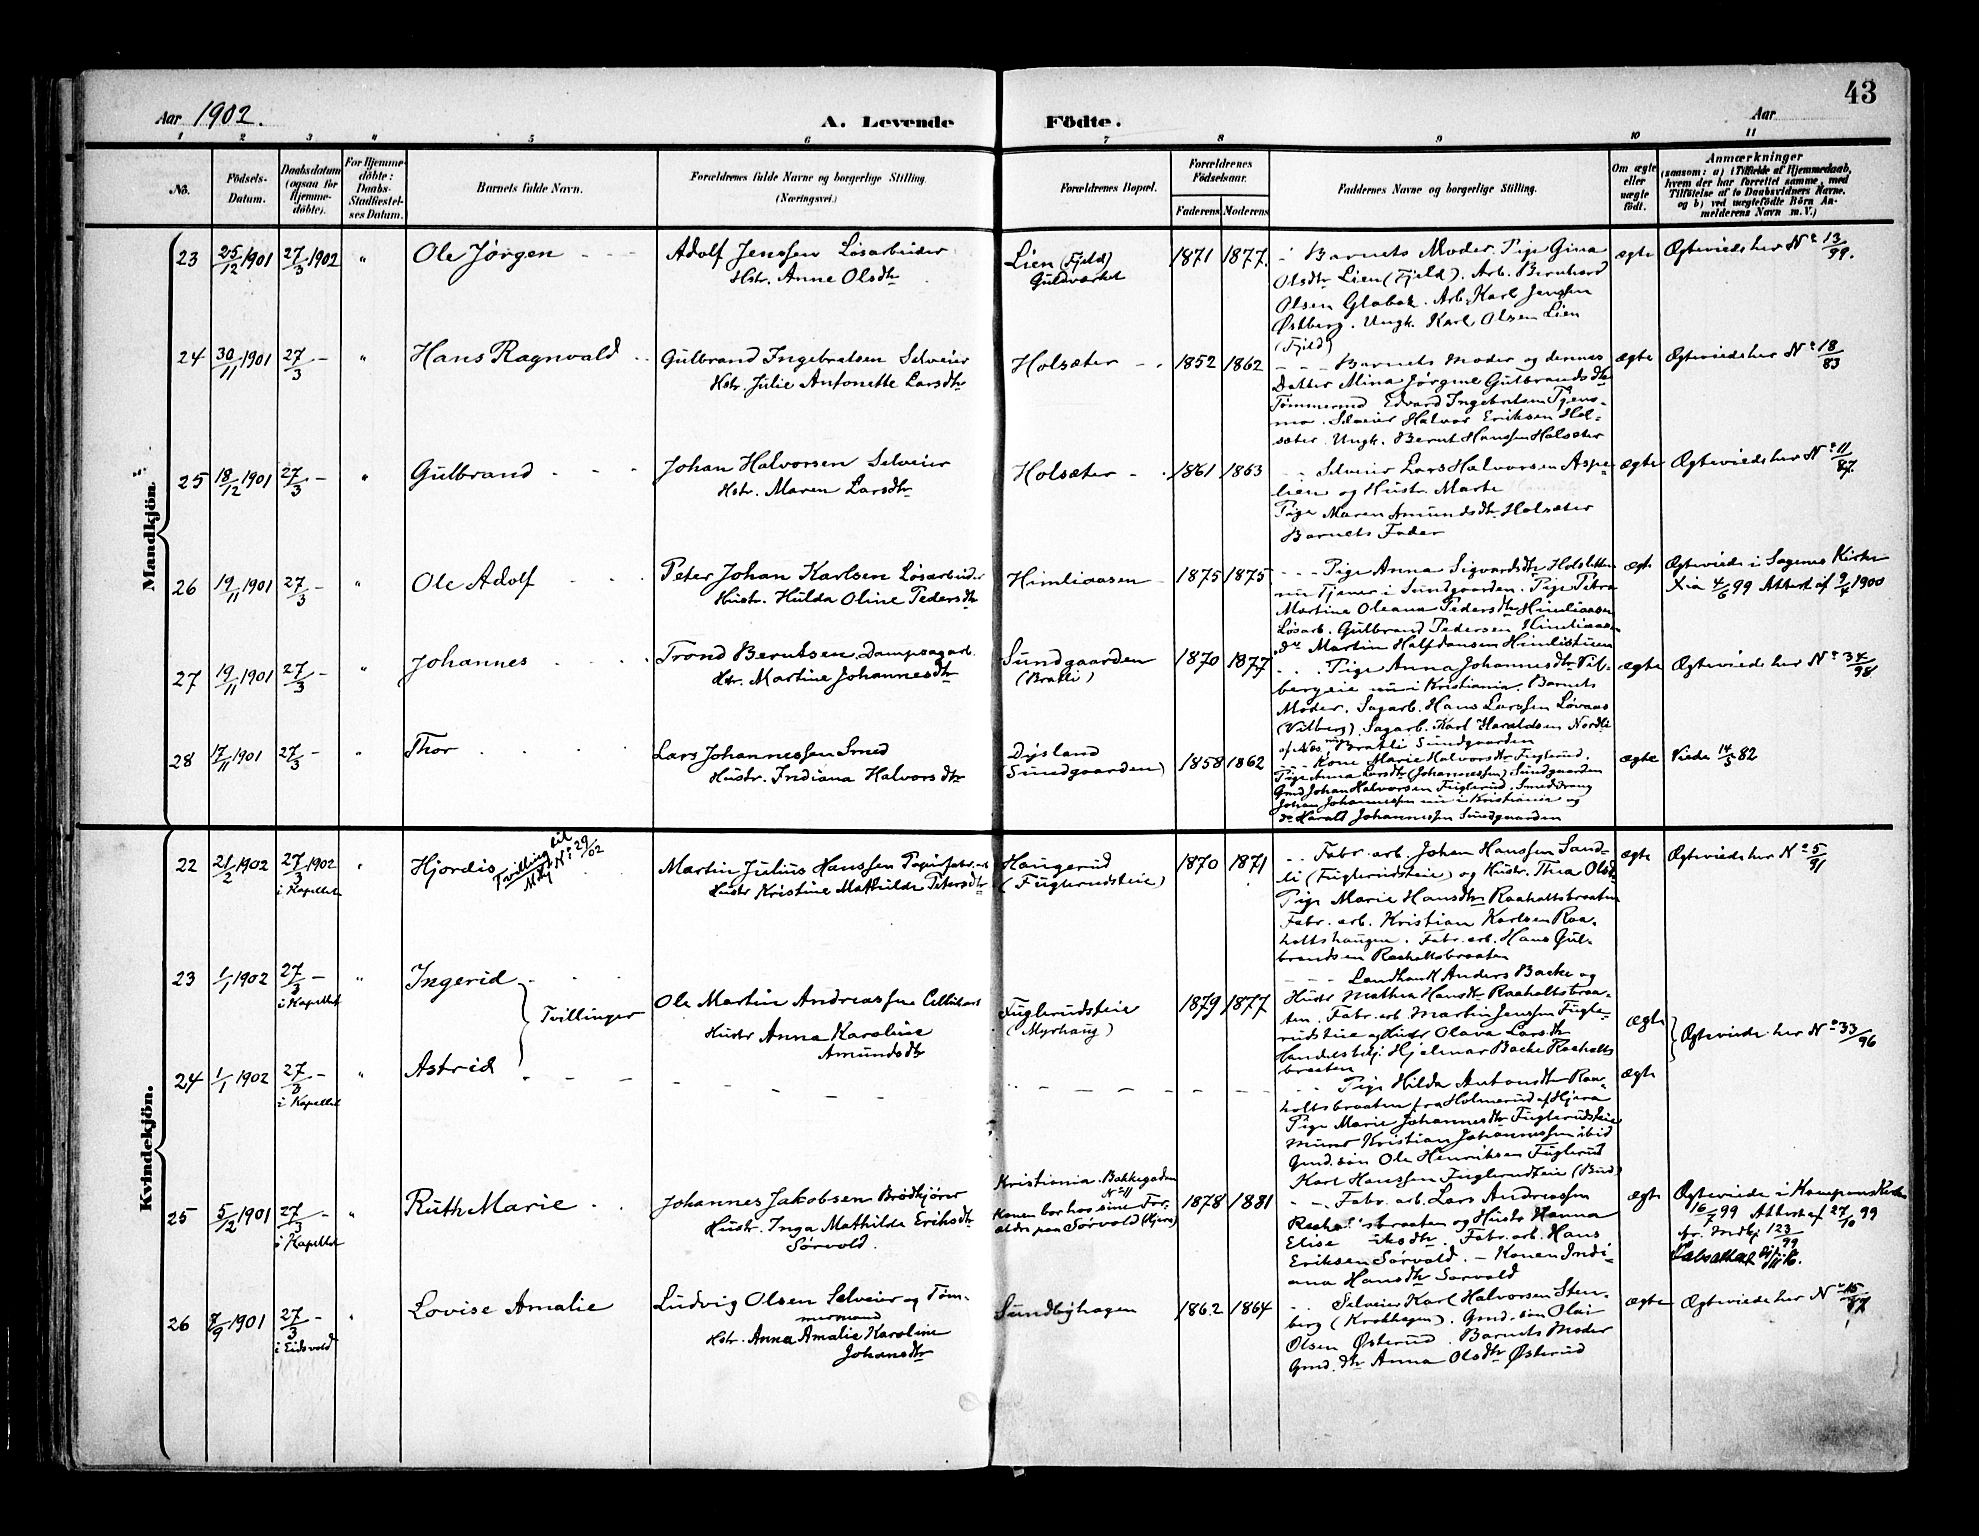 43
Aar 1902.
A. Levende Födte.
Aar
1 2 3 " 5 6 7 8 9 10 11
No.
Födsels-Datum.
Daabsdatum (ogsaa for Hjemme-döbte).
For Hjemme-döbte: Daabs-Stadfæstel-ses Datum.
Barnets fulde Navn.
Forældrenes fulde Navne og borgerlige Stilling.
(Næringsvei.)
Forældrenes Bopæl.
Forældrenes Födselsaar.
Faderens Moderens
Faddernes Navne og borgerlige Stilling.
Om ægte eller uægte födt.
Anmærkninger
(saasom: a) i Tilfælde af Hjemmedaab, hvem der har forrettet samme, med Tilföielse af to Daabsvidners Navne, og b) ved uægtefödte Börn An-melderens Navn m. V.)
Mandkjön.
23 25/12 1901 27/3 1902 " Ole Jørgen
Adolf Jenssen Løsarbeider
Hstr. Anne Olsdtr
Lien (Fjeld)
Guldværket
1871 1877.
Barnets Moder. Pige Gina
Olsdtr Lien (Fjeld). Arb. Bernhard
Olsen Glabak. Arb. Karl Jenssen
Østberg. Ungk. Karl Olsen Lien
(Fjeld)
ægte Ægteviede her No 13/99.
24 30/11 1901 27/3 – " Hans Ragnvald
Gulbrand Ingebretsen Selveier
Hstr. Julie Antonette Larsdtr
Holsæter
1852 1862
Barnets Moder og dennes
Datter Alina Jørgine Gulbrandsdtr
Tømmerud Edvard Ingebretsen Tjens-
mo. Selveier Halvor Eriksen Hol-
sæter. Ungk. Bernt Hanssen Holsæter
ægte Ægteviede her No 18/83
25 18/12 1901 27/3 – " Gulbrand
Johan Halvorsen Selveier
Hstr. Maren Larsdtr
Holsæter
1861 1863
Selveier Lars Halvorsen Aspe-
lien og Hustr. Marte
Pige Maren Amundsdtr Holsæter
Barnets Fader
ægte Ægteviede her No 11/87.
26 19/11 1901 27/3 – " Ole Adolf
Peter Johan Karlsen Løsarbeider
Hustr. Hulda Oline Pedersdtr
Himliaasen
1875 1875
Pige Anna Sigvardsdtr Holsletten
nu Tjener i Sundgaarden. Pige Petra
Martine Oleana Pedersdtr Himliaasen
Løsarb. Gulbrand Pedersen Himliaasen
do Martin Halfdansen Himlistuen
ægte Ægteviede i Sagenes Kirke
Xia 4/6 99 Attest af 9/4 1900
27 19/11 1901 27/3 – " Johannes
Trond Berntsen Dampsagarb.
Hstr. Martine Johannesdtr
Sundgaarden
(Bratli)
1870 1877
Pige Anna Johannesdtr Vil-
bergeie nu i Kristiania. Barnets
Moder. Sagarb. Hans Larssen Løvaas
(Vilberg) Sagarb. Karl Haraldsen Nordli
af Nes, Bratli Sundgaarden
ægte Ægteviede her No 34/98
28 17/11 1901 27/3 – " Thor
Lars Johannessen Smed
Hustr. Indiana Halvorsdtr
Dysland
(Sundgaarden)
1858 1862
Kone Marie Halvorsdtr Fuglerud.
Pige Anna Larsdtr (Johannessen) Sundgaarden
Gmd Johan Halvorsen Fuglerud. Smeddreng
Johan Johannessen nu i Kristiania og
do Harald Johannessen Sundgaarden
ægte Viede 14/5 82
Kvindekjön.
22 21/2 1902 27/3 1902 " Hjordis
i Kapellet
Tvilling til
Mkj. No 29/02
Martin Julius Hanssen Papirfabr.arb
Hustr Kristine Mathilde Petersdtr
Haugerud
(Fuglerudseie)
1870 1871
Fabr. arb. Johan Hanssen Sand-
li (Fuglerudseie) og Hustr. Thea Olsdtr
Pige Marie Hansdtr Raaholtsbraaten
Fabr. arb. Kristian Karlsen Raa-
holtshaugen. Fabr. arb. Hans Gul-
brandsen Raaholtsbraaten
ægte Ægteviede her No 5/91
23 1/1 1902 27/3 – " Ingerid
i Kapellet
Tvillinger
Ole Martin Andreassen Cellul.arb
Hustr Anna Karoline
Amundsdtr
Fuglerudseie
(Myrhaug)
1879 1877
Landhand. Anders Bache og
Hustr Mathea Hansdtr Raaholtsbraa-
ten. Fabr. arb. Martin Jenssen Fugle-
rudseie og Hustr Olava Larsdtr
Handelsbetj. Hjelmar Bache Raaholts
braaten
ægte Ægteviede her No 33/96
24 1/1 1902 27/3 – " Astrid
i Kapellet
Pige Hilda Antonsdtr Raa-
holtsbraaten fra Holmerud af Hjera
Pige Marie Johannesdtr Fuglerudseie
Murer Kristian Johannessen ibid
Gmd. søn Ole Henriksen Fuglerud
Karl Hanssen Fuglerudseie (Bud)
ægte
25 5/12 1901 27/3 – " Ruth Marie
i Kapellet
Johannes Jakobsen Brødkjører
Hustr. Inga Mathilde Eriksdtr
Sørvold.
Kristiania. Bakkegaden
No 11
Konen bor hos sine For-
ældre paa Sørvold (Hjera)
1878 1881
Fabr. arb. Lars Andreassen
Raaholtsbraaten og Hustr Hanna
Elise Fabr. arb. Hans
Eriksen Sørvold. – Konen Indi-
ana Hansdtr Sørvold
ægte Ægteviede i Kampens Kirke
16/7 99 Attest af 27/10 99
fr. Mdkj 123/99
26 8/9 1901 27/3 – " Lovise Amalie
i Eidsvold
Ludvig Olsen Selveier og Tøm-
mermand
Hstr. Anna Amalie Karoline
Johansdtr
Sundbyhagen
1862 1864
Selveier Karl Halvorsen Sten-
berg (Krokhagen). Gmd. søn Olai
Olsen Østerud. Barnets Moder
Gmd. dtr Anna Olsdtr Østerud
ægte Ægteviede her No 15/87